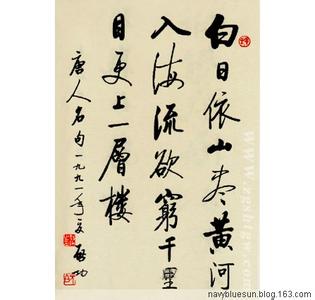 白日依山盡黄河
入海流欲窮千里
目更上一層樓
唐人名句一九九一年夏 啟功
navybluesun.blog.163.com